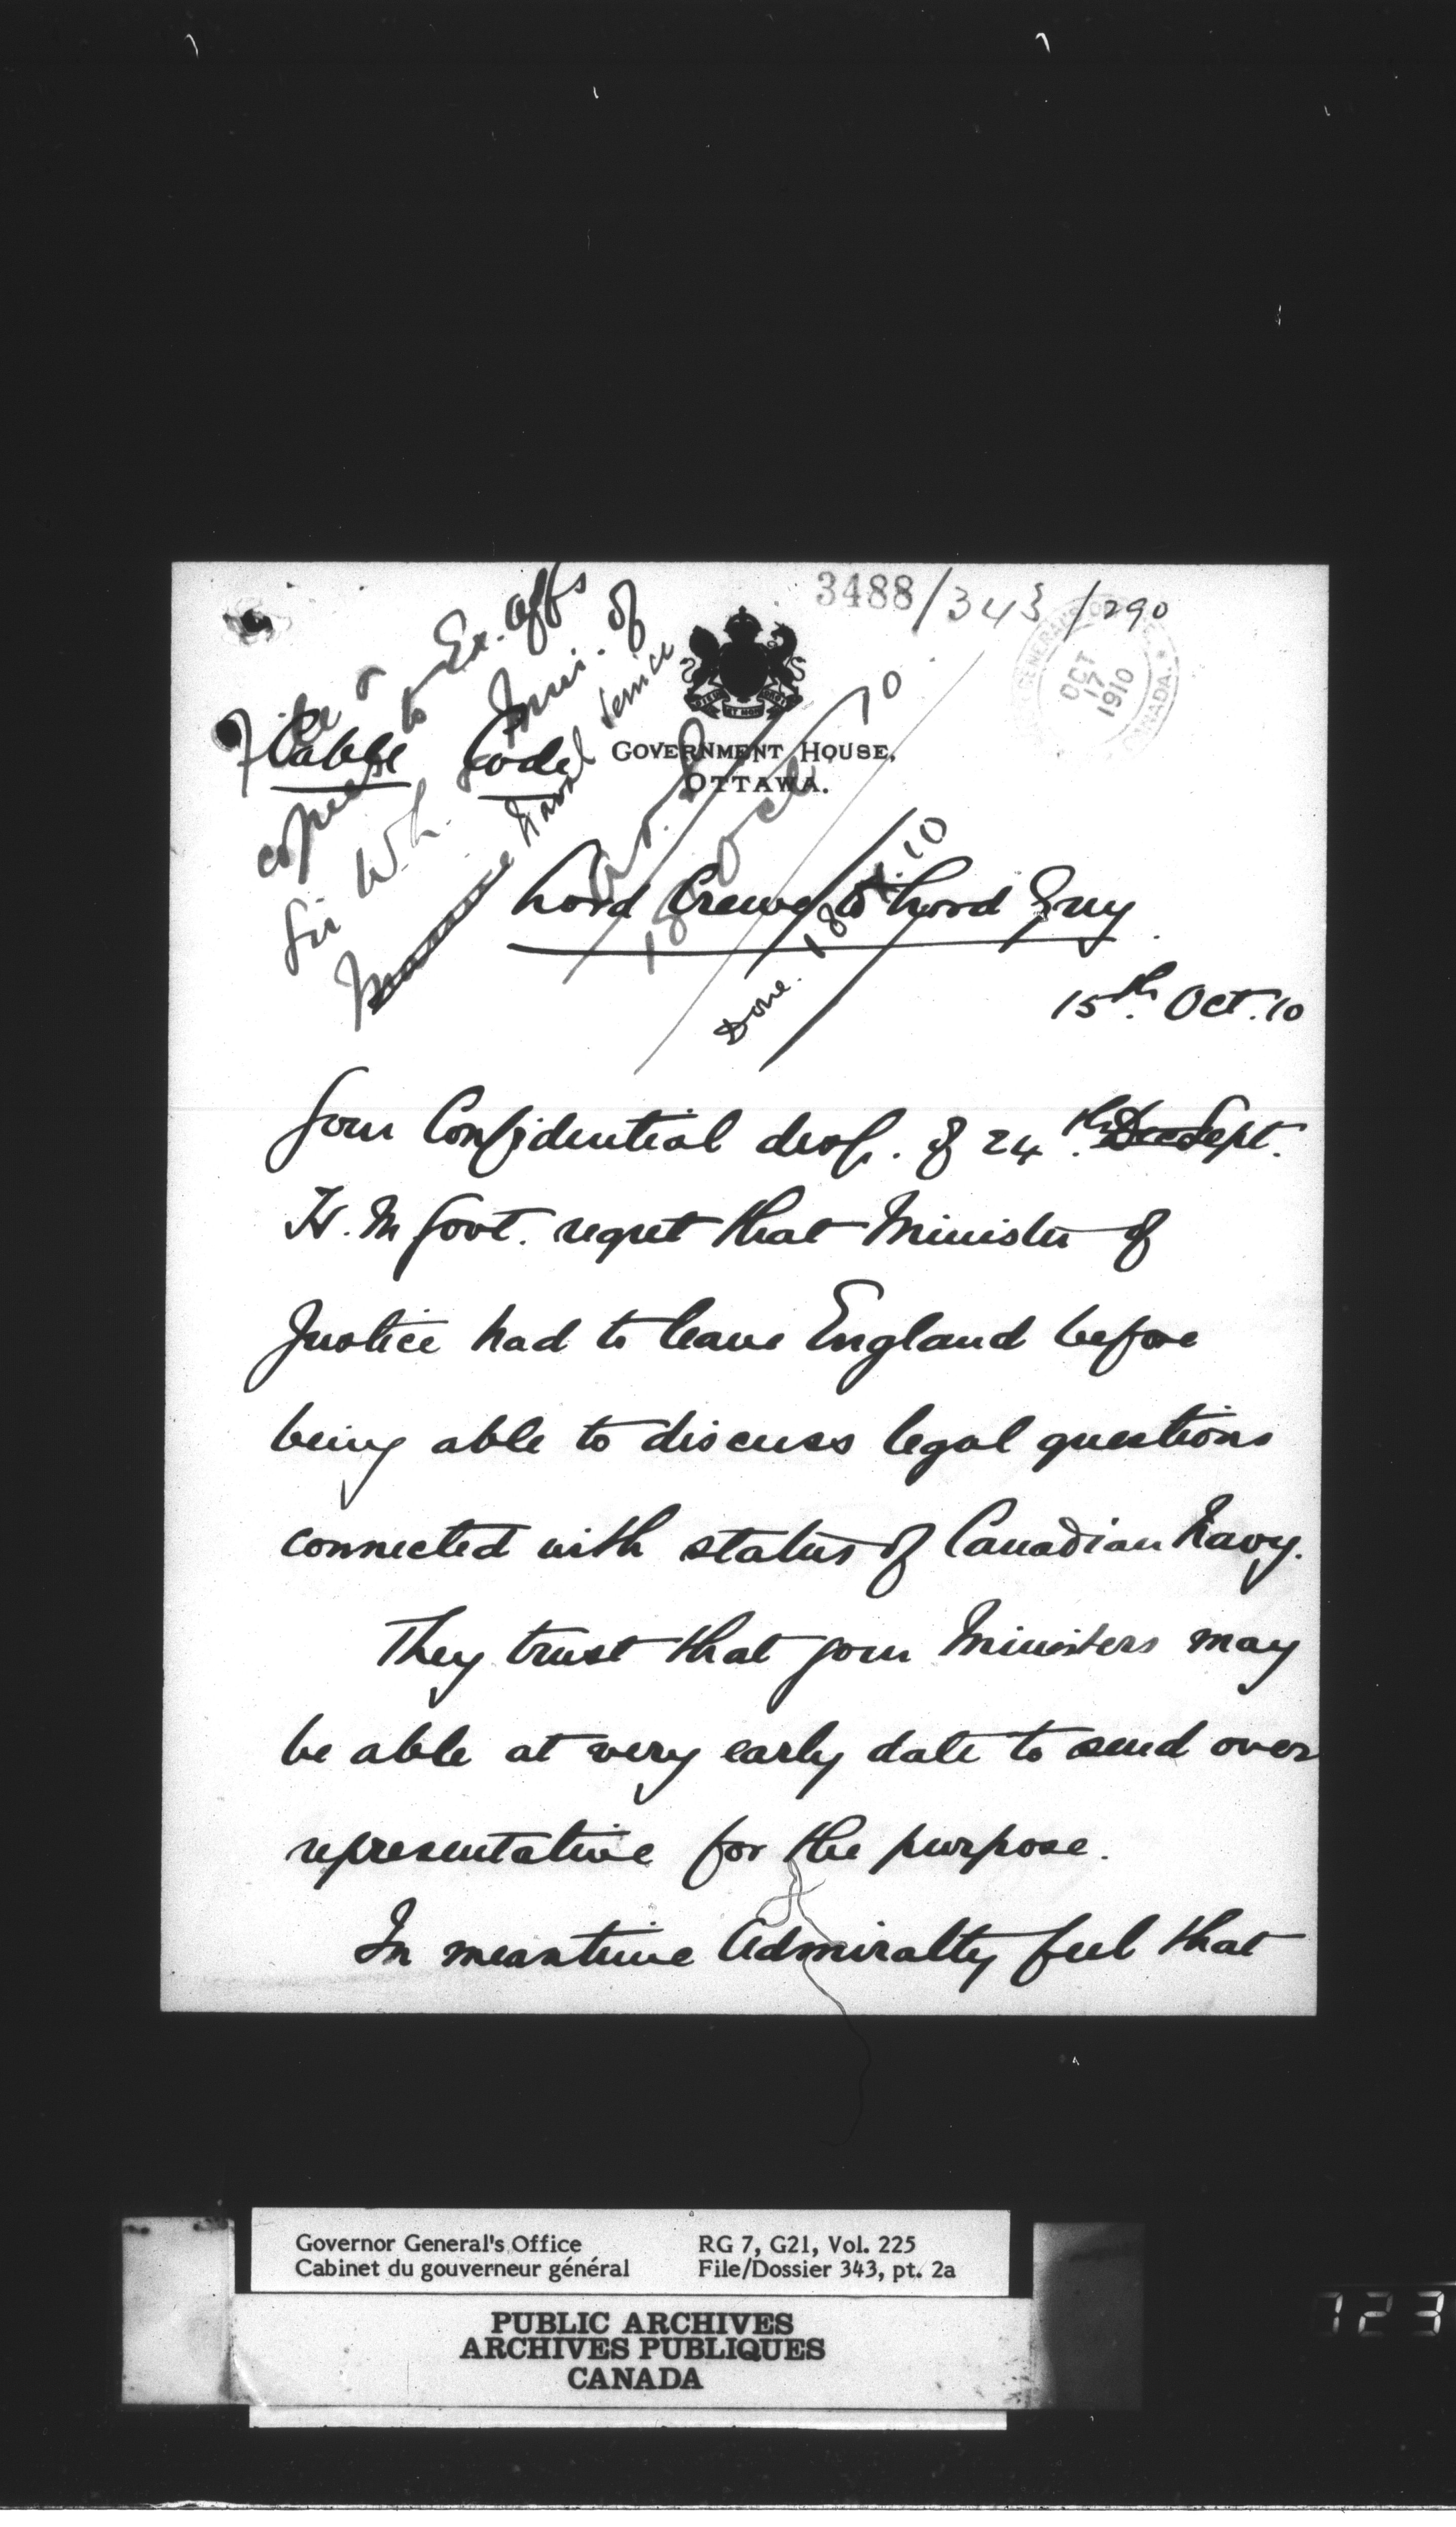 3488/343/290
GOVERNOR GENERAL'S OFFICE
OCT
17
1910
CANADA.
File &
copies to Ex. Affs
Sir W.L. Minr. of
Marine Naval Service
Cable Code
GOVERNMENT HOUSE,
OTTAWA.
18 Oct 10
Done. 18.X.10
Lord Crewe to Lord Grey
15th. Oct. 10
Your Confidential desp. of 24th. Dec Sept.
H.M Govt. regret that Minister of
Justice had to leave England before
being able to discuss legal questions
connected with status of Canadian Navy.
They trust that your Ministers may
be able at very early date to send over
representative for the purpose.
In meantime Admiralty feel that
Governor General's Office
Cabinet du gouverneur général
RG 7, G21, Vol. 225
File/Dossier 343, pt. 2a
PUBLIC ARCHIVES
ARCHIVES PUBLIQUES
CANADA
723